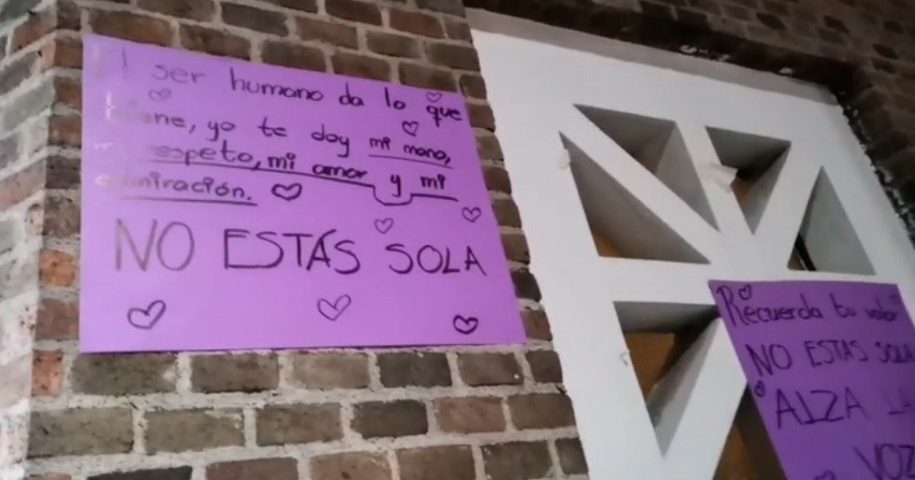 ser humano da lo que
tiene, yo te doy mi mano,
mi respeto, mi amor y mi
admiración.
NO ESTÁS SOLA
Recuerda tu valor
NO ESTAS SOLA
ALZA LA
VOZ